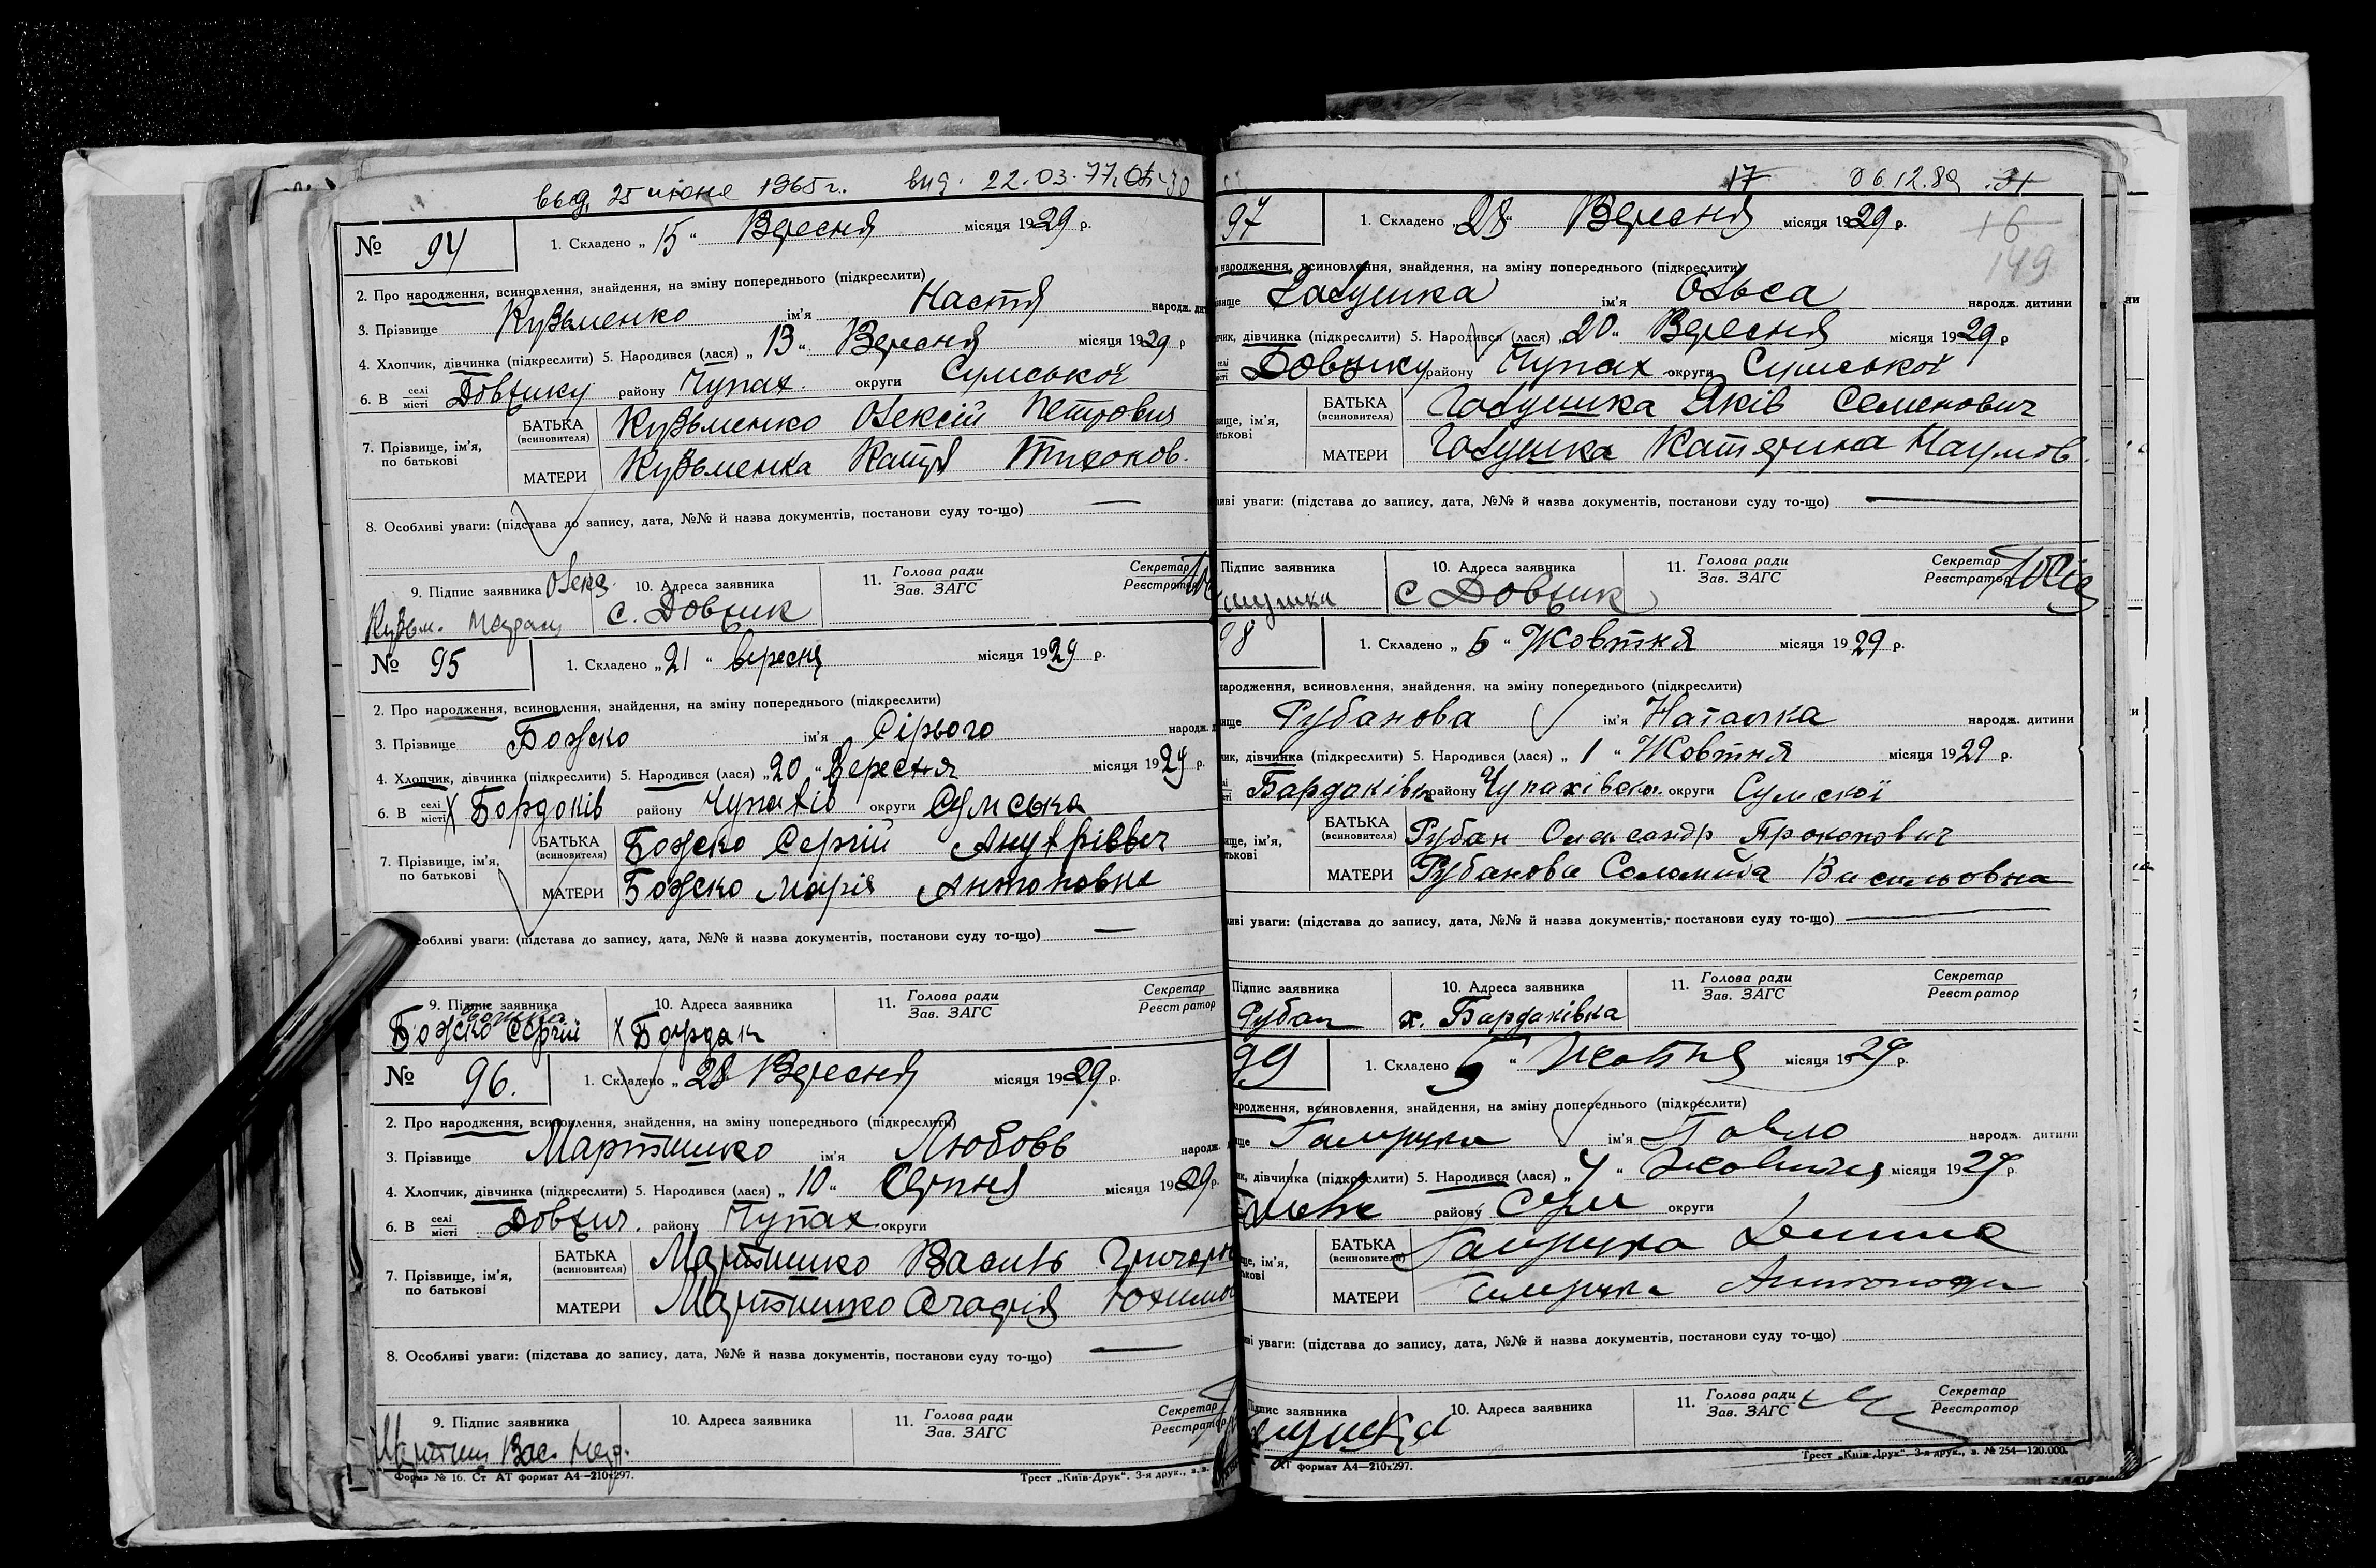 выд. 25 июне 1965 г. вид. 22.03.77. 30
№ 94 1. Складено „ 15 “ Вересня місяця 1929 р.
2. Про народження, всиновлення, знайдення, на зміну попереднього (підкреслити)
3. Прізвище Кузьменко ім'я Настя народж.
4. Хлопчик, дівчинка (підкреслити) 5. Народився (лася) „ 13 “ Вересня місяця 1929 р
6. В селі/місті Довжику району Чупах. округи Сумської
7. Прізвище, ім'я, по батькові
БАТЬКА (всиновителя) Кузьменко Олексій Петрович
МАТЕРИ Кузьменка Катря Тихонов.
8. Особливі уваги: (підстава до запису, дата, №№ й назва документів, постанови суду то-що) —
9. Підпис заявника 10. Адреса заявника 11. Голова ради/Зав. ЗАГС Секретар/Реєстратор
Кузьм. с. Довжик
№ 95 1. Складено „ 21 “ вересня місяця 1929 р.
2. Про народження, всиновлення, знайдення, на зміну попереднього (підкреслити)
3. Прізвище Божко ім'я народж.
4. Хлопчик, дівчинка (підкреслити) 5. Народився (лася) „ 20 “ Вересня місяця 1929 р.
6. В селі/місті Х Бордаків району Чупахів округи Сумська
7. Прізвище, ім'я, по батькові
БАТЬКА (всиновителя) Божко Сергій
МАТЕРИ Божко Марія Антоновна
Особливі уваги: (підстава до запису, дата, №№ й назва документів, постанови суду то-що) —
9. Підпис заявника 10. Адреса заявника 11. Голова ради/Зав. ЗАГС Секретар/Реєстратор
Божко Сергій х Бордак
№ 96. 1. Складено „ 28 Вересня місяця 1929 р.
2. Про народження, всиновлення, знайдення, на зміну попереднього (підкреслити)
3. Прізвище Мартишко ім'я Любовь народж.
4. Хлопчик, дівчинка (підкреслити) 5. Народився (лася) „ 10 “ Серпня місяця 1929 р.
6. В селі/місті Довжич. району Чупах. округи
7. Прізвище, ім'я, по батькові
БАТЬКА (всиновителя) Мартишко Василь
МАТЕРИ Мартишко
8. Особливі уваги: (підстава до запису, дата, №№ й назва документів, постанови суду то-що) —
9. Підпис заявника 10. Адреса заявника 11. Голова ради/Зав. ЗАГС Секретар/Реєстратор
Форма № 16. Ст АТ формат А4—210х297. Трест „Київ-Друк“. 3-я друк.,
17 06.12.89 31
16
149
97 1. Складено „ 28 “ Вересня місяця 1929 р.
народження, всиновлення, знайдення, на зміну попереднього (підкреслити)
Галушка ім'я Ольга народж. дитини
дівчинка (підкреслити) 5. Народився (лася) „ 20 “ Вересня місяця 1929 р
Довжику району Чупах округи Сумської
БАТЬКА (всиновителя) Галушка Яків Семенович
МАТЕРИ Галушка Катерина Наумов.
уваги: (підстава до запису, дата, №№ й назва документів, постанови суду то-що) —
Підпис заявника 10. Адреса заявника 11. Голова ради/Зав. ЗАГС Секретар/Реєстратор
с Довжик
98 1. Складено „ 5 “ Жовтня місяця 1929 р.
народження, всиновлення, знайдення, на зміну попереднього (підкреслити)
Рубанова ім'я Наталка народж. дитини
дівчинка (підкреслити) 5. Народився (лася) „ 1 “ Жовтня місяця 1929 р.
Бардаківк району Чупахівськ. округи Сумскої
БАТЬКА (всиновителя) Рубан Олександр Прокопович
МАТЕРИ Рубанова Соломида Васильовна
уваги: (підстава до запису, дата, №№ й назва документів, постанови суду то-що) —
Підпис заявника 10. Адреса заявника 11. Голова ради/Зав. ЗАГС Секретар/Реєстратор
Рубан х. Бардаківка
99 1. Складено 5 “ Жовтня місяця 1929 р.
народження, всиновлення, знайдення, на зміну попереднього (підкреслити)
ім'я Павло народж. дитини
дівчинка (підкреслити) 5. Народився (лася) „ 4 “ Жовтня місяця 1929 р.
району Сум округи
БАТЬКА (всиновителя)
МАТЕРИ
уваги: (підстава до запису, дата, №№ й назва документів, постанови суду то-що)
Підпис заявника 10. Адреса заявника 11. Голова ради/Зав. ЗАГС Секретар/Реєстратор
АТ формат А4—210х297. Трест „Київ-Друк“. 3-я друк., з. № 254—120.000.